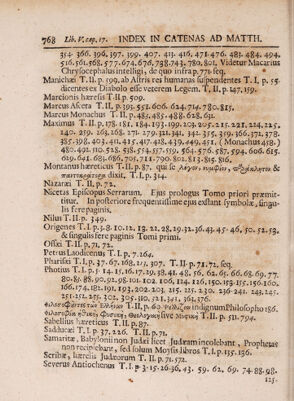 768 Lib. V. cap. 17. INDEX IN CATENAS AD MATTH.
354. 366. 396. 397. 399. 407. 413. 416. 471. 476. 483. 484. 494.
516. 561. 568. 577. 674. 676. 738. 743. 780. 801. Videtur Macarius
Chrysocephalus intelligi, de quo infra p. 771. seq.
Manichæi T. II. p. 199. ab Astris res humanas suspendentes T. I. p. 55.
dicentes ex Diabolo esse veterem Legem. T. II. p. 147. 159.
Marcionis hæresis T. II p. 509.
Marcus Asceta T. II. p. 393. 551. 606. 624. 714. 780. 815.
Marcus Monachus T. II. p. 485. 485. 488. 628. 631.
Maximus T. II. p. 178. 181. 184. 193. 199. 203. 205. 215. 221. 224. 225.
140. 259. 263. 268. 271. 279. 321. 341. 342. 355. 359. 366. 371. 378.
385. 398. 403. 411. 415. 417. 428. 439. 449. 451. (Monachus 458.)
480. 492. 110. 528. 538. 554. 557. 559. 564. 576. 587. 594. 606. 615.
629. 641. 683. 686. 705. 711. 790. 802. 813. 815. 816.
Montanus hæreticus T. II. p. 87. qui se
dixit. T. I. p. 314.
Nazaræi T. II. p. 72.
Nicetas Episcopus Serrarum. Ejus prologus Tomo priori præmit-
titur. In posteriore frequentissime ejus exstant symbolæ, singu-
lis fere paginis.
Nilus T. II p. 349.
Origenes T. I. p. 3. 8. 10. 12. 13. 22. 28. 29. 32. 36. 43. 45. 46. 50. 52. 53.
& singulis fere paginis Tomi primi.
Ossei T. II. p. 71. 72.
Petrus Laodicenus T. I. p. 7. 264.
Pharisæi T. I. p. 37. 67. 168. 215. 307. T. II. p. 71. 72. seq.
Photius T. I. p. 5. 14. 15. 16. 17. 29. 38. 41. 48. 56. 62. 65. 66. 68. 69. 77.
80. 85. 88. 90. 92. 98. 101. 102. 106. 124. 126. 150. 153. 155. 156. 160.
166. 174. 181. 191. 193. 209. 202. 215. 225. 230. 236. 241. 243. 245.
251. 252. 255. 302. 305. 110. 321. 341. 361. 376.
T. II. p. 60. indignum Philosopho 186.
sive T. II. p. 511. 794.
Sabellius hæreticus T. II. p. 87.
Sadducæi T. I. p. 37. 226. T. II. p. 71.
Samaritæ, Babylonii non Judæi licet Judæam incolebant, Prophetas
non recipiebant, sed solum Moysis libros T. I. p. 135. 136.
Scribæ, hæresis Judæorum T. II. p. 71. 572.
Severus Antiochenus T. I. p. 3. 15. 26. 36. 43. 59. 62. 69. 74. 88. 98.
125.